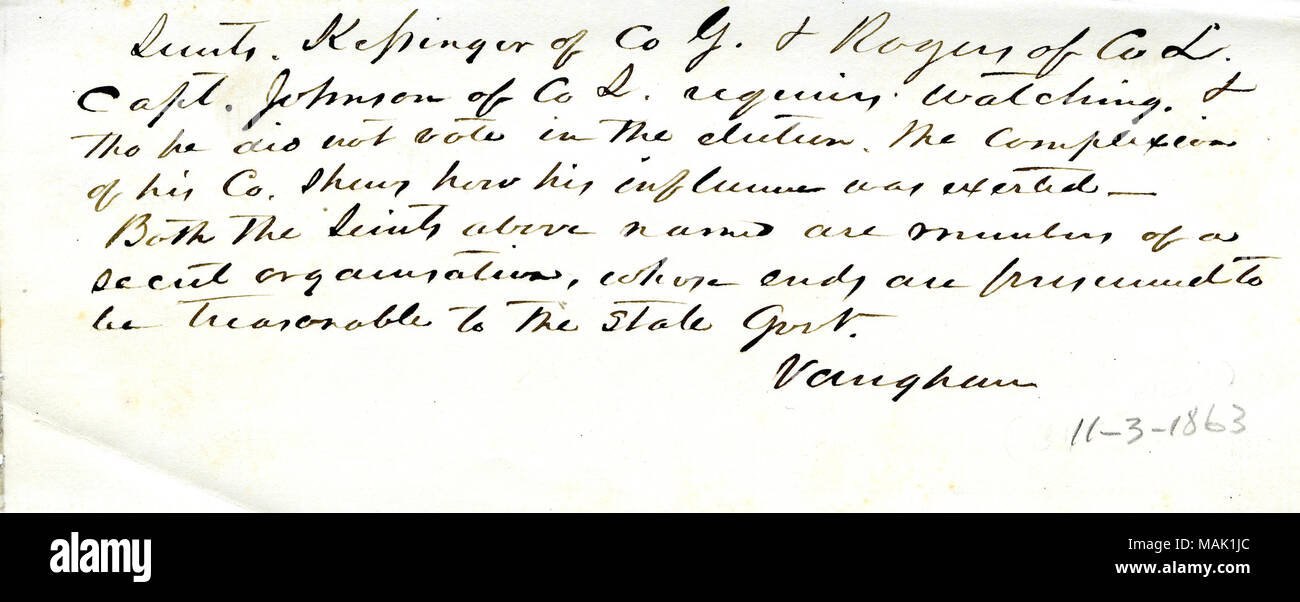 Lieuts. Kessinger of Co G. & Rogers of Co L.
Capt. Johnson of Co L. requires watching. &
tho he did not vote in the election. the complexion
of his Co. shews how his influence was exerted —
Both the Lieuts above named are members of a
secret organisation, whose ends are presumed to
be treasonable to the State Govt.
Vaughan
11-3-1863
alamy stock photo
MAK1JC
www.alamy.com